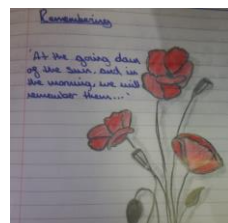 Remembering
'At the going down
of the sun, and in
the morning, we will
remember them...'